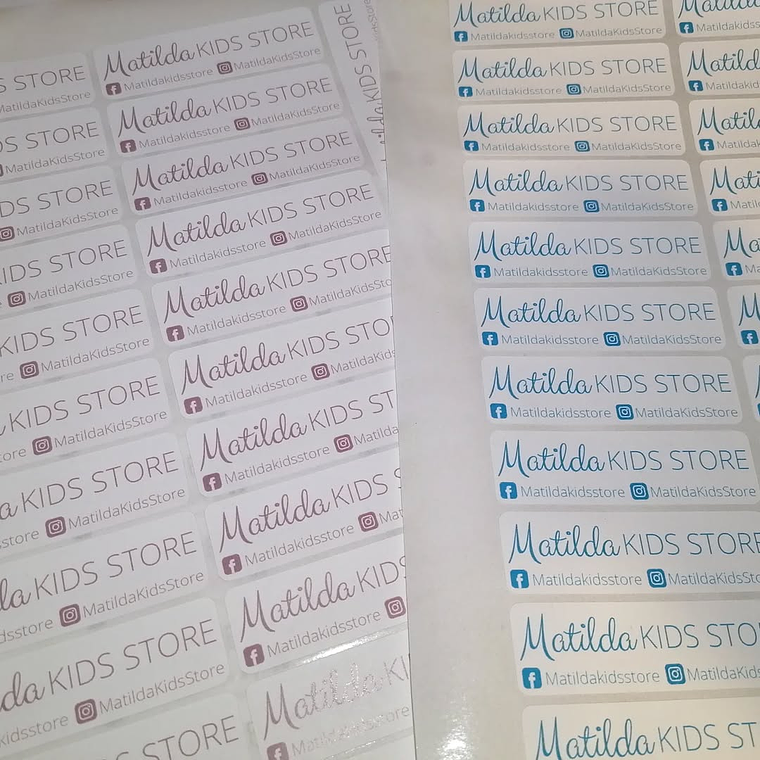 STORE
MatildaKidsStore
STORE
MatildaKidsStore
STORE
MatildaKidsStore
STORE
MatildaKidsStore
KIDS STORE
MatildaKidsStore
KIDS STORE
MatildaKidsStore
KIDS STORE
MatildaKidsStore
KIDS STORE
MatildaKidsStore
KIDS STORE
MatildaKidsStore
STORE
Matilda KIDS STORE
Matildakidsstore MatildaKidsStore
Matilda KIDS STORE
Matildakidsstore MatildaKidsStore
Matilda KIDS STORE
Matildakidsstore MatildaKidsStore
Matilda KIDS STORE
Matildakidsstore MatildaKidsStore
Matilda KIDS STORE
Matildakidsstore MatildaKidsSt
Matilda KIDS STO
Matildakidsstore MatildaKids
Matilda KIDS ST
Matildakidsstore Matilda
Matilda KIDS S
Matildakidsstore Mat
Matilda KIDS
Matildakidsstore
Matilda KI
KIDS STORE
Matilda KIDS STORE
Matildakidsstore MatildaKidsStore
Matilda KIDS STORE
Matildakidsstore MatildaKidsStore
Matilda KIDS STORE
Matildakidsstore MatildaKidsStore
Matilda KIDS STORE
Matildakidsstore MatildaKidsStore
Matilda KIDS STORE
Matildakidsstore MatildaKidsStore
Matilda KIDS STORE
Matildakidsstore MatildaKidsStore
Matilda KIDS STORE
Matildakidsstore MatildaKidsStore
Matilda KIDS STORE
Matildakidsstore MatildaKidsStore
Matilda KIDS STORE
Matildakidsstore MatildaKidsSto
Matilda KIDS STO
Matildakidsstore MatildaKids
Matilda KIDS ST